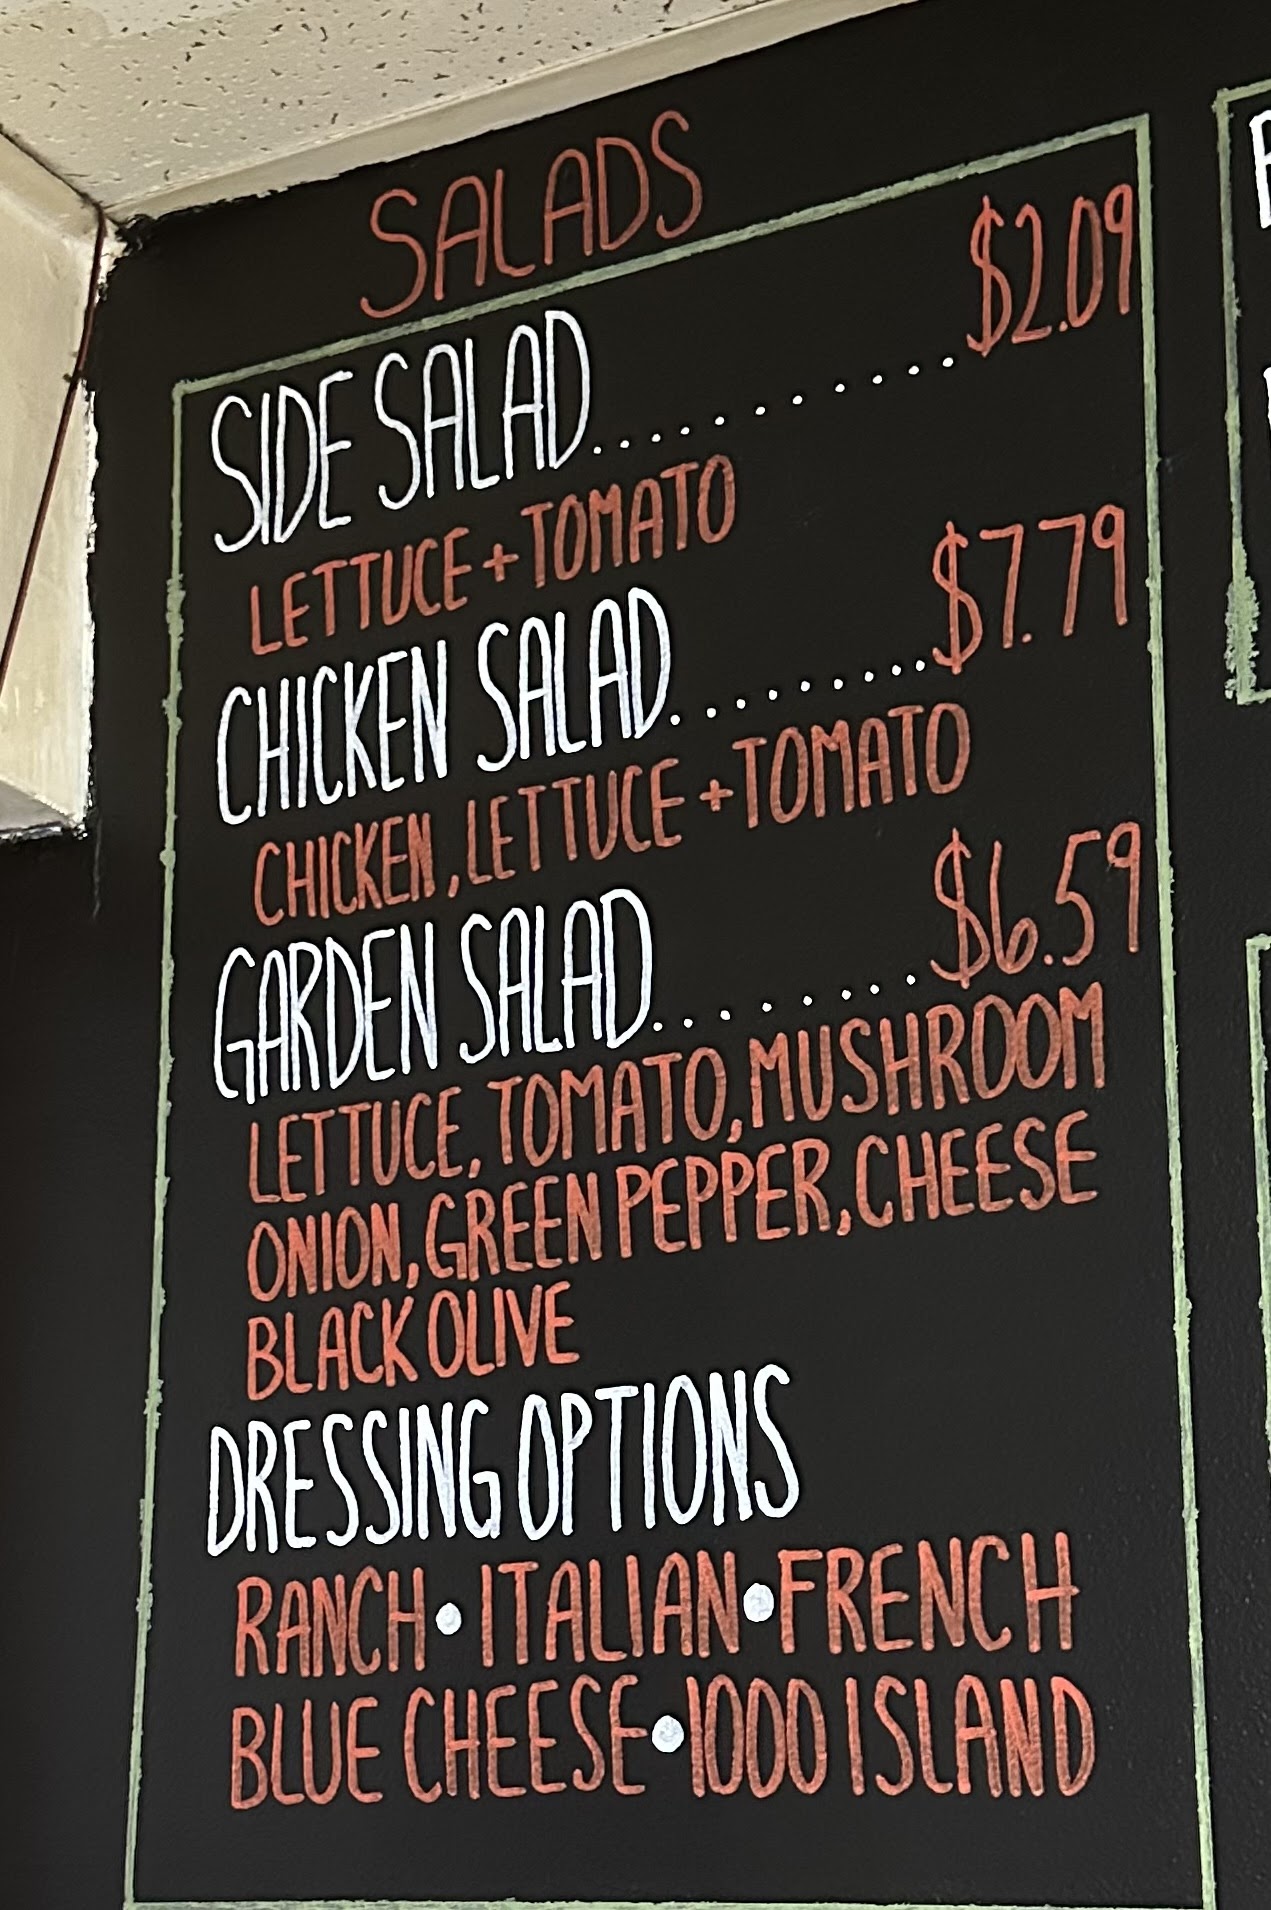 SALADS
SIDE SALAD..........$2.09
LETTUCE + TOMATO
CHICKEN SALAD.........$7.79
CHICKEN, LETTUCE + TOMATO
GARDEN SALAD........$6.59
LETTUCE, TOMATO, MUSHROOM
ONION, GREEN PEPPER, CHEESE
BLACK OLIVE
DRESSING OPTIONS
RANCH • ITALIAN • FRENCH
BLUE CHEESE • 1000 ISLAND